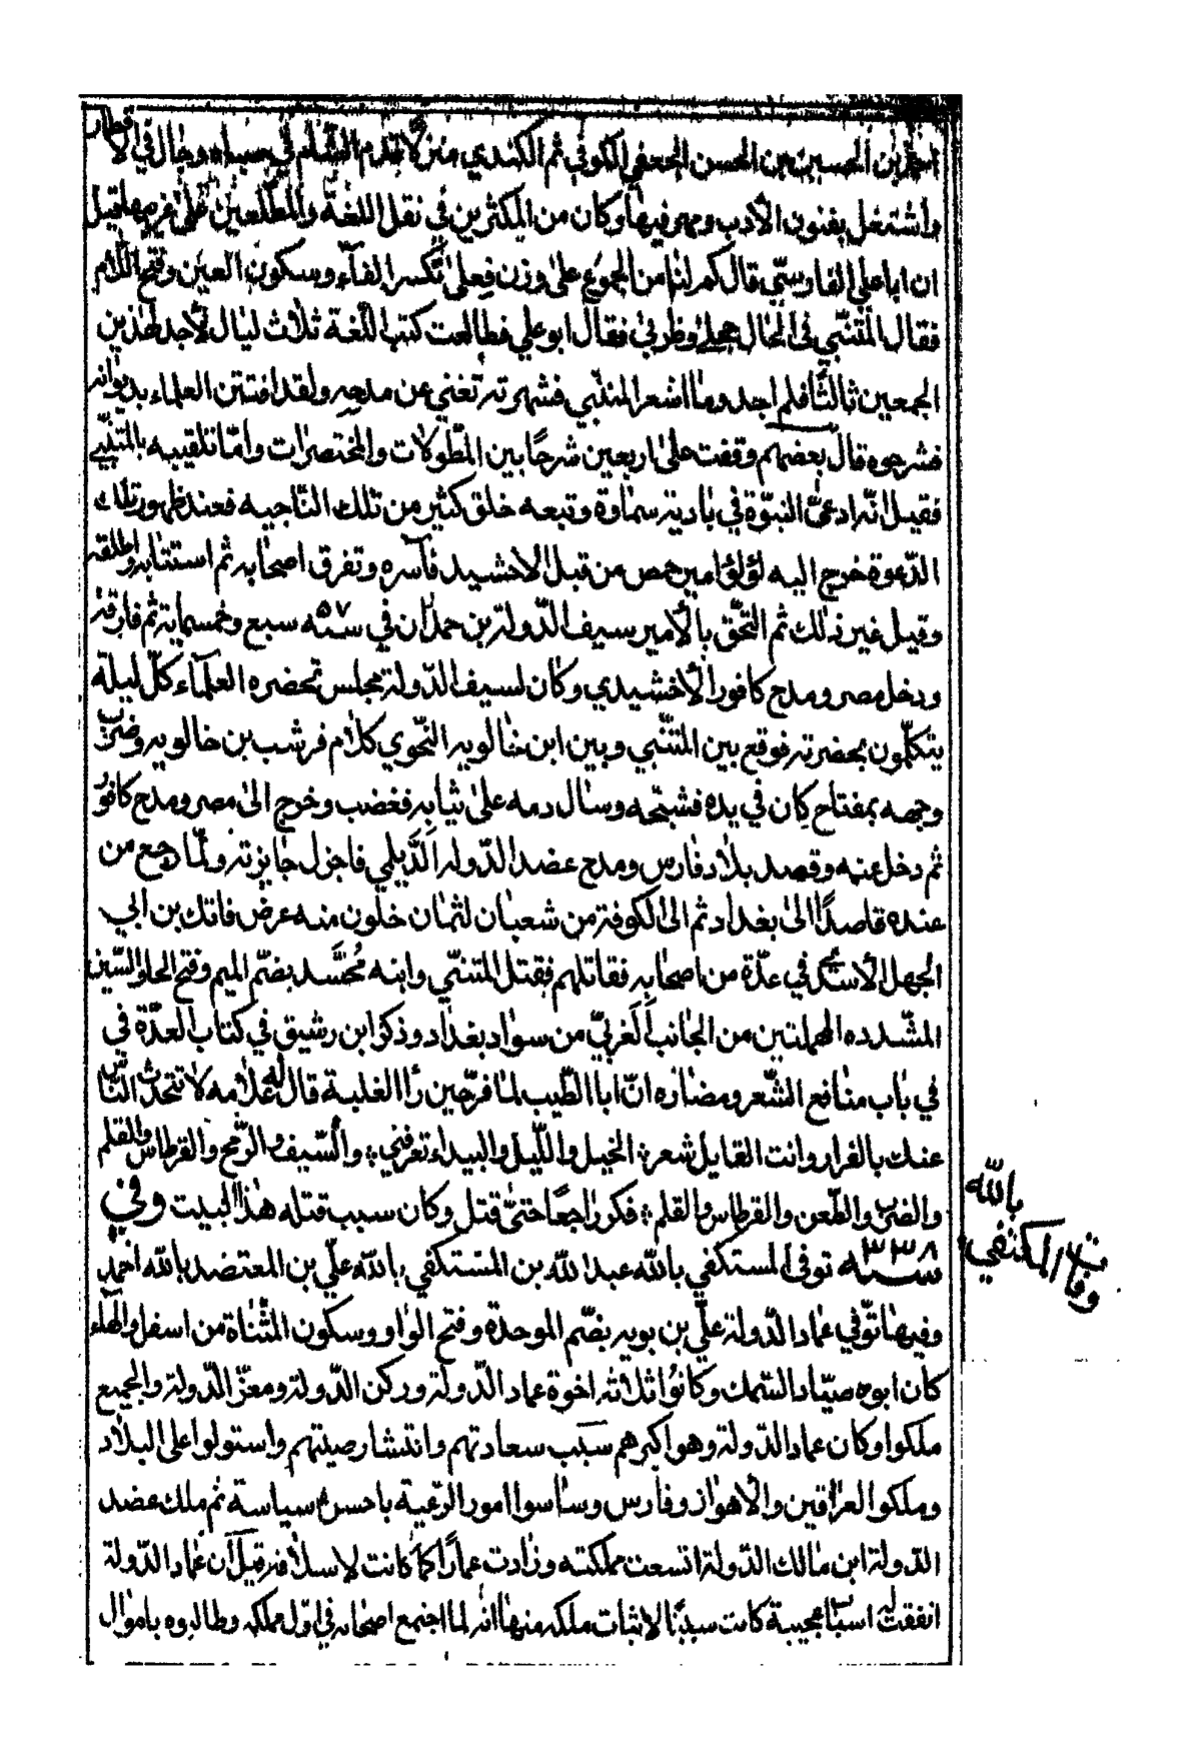 احمد بن الحسين بن الحسن الجعفي الكوفي ثم الكندي منزلا قدم الشام في صباه وجال في الاقطار
واشتغل بفنون الأدب ومهر فيها وكان من المكثرين في نقل اللغة والمطلعين على غريبها قيل
ان ابا علي الفارسي قال كم لنا من الجموع على وزن فعلى بكسر الفاء وسكون العين وفتح اللام
فقال المتنبي في الحال حجلى وظربى فقال ابو علي فطالعت كتب اللغة ثلاث ليال لأجد لهذين
الجمعين ثالثا فلم اجد وما اشعر المتنبي فشهرته تغني عن مدحه ولقد افتتن العلماء بديوانه
فشرحوه قال بعضهم وقفت على اربعين شرحا بين المطولات والمختصرات وامّا تلقيبه بالمتنبي
فقيل انه ادعى النبوة في بادية سماوة وتبعه خلق كثير من تلك الناحيه فعند ظهور تلك
الدعوة خرج اليه لؤلؤ امير حمص من قبل الاخشيد فآسره وتفرق اصحابه ثم استتابه واطلقه
وقيل غير ذلك ثم التحق بالأمير سيف الدولة بن حمدان في سنه ٥٧ سبع وخمسماية ثم فارقه
ودخل مصر ومدح كافورا الأخشيدي وكان لسيف الدولة مجلس تحضره العلماء كل ليلة
يتكلمون بحضرته فوقع بين المتنبي وبين ابن خالويه النحوي كلام فرشب بن خالويه وضرب
وجهه بمفتاح كان في يده فشجه وسال دمه على ثيابه فغضب وخرج الى مصر ومدح كافور
ثم دخل عنه وقصد بلاد فارس ومدح عضد الدوله الديلمي فاجزل جايزته ولما رجع من
عنده قاصدًا الى بغداد ثم الى الكوفة من شعبان لثمان خلون منه عرض فاتك بن ابي
الجهل الأسدي في عدّة من اصحابه فقاتلهم فقتل المتنبي وابنه مُحَسَّد بضم الميم وفتح الحاء والسين
المشدده المهملتين من الجانب الغربيّ من سواد بغداد وذكر ابن رشيق في كتاب العدّة في
في باب منافع الشعر ومضاره انّ ابا الطيب لما فرّ حين رأا الغلبة قال له غلامه لا تتحدث الناس
عنك بالفرار وانت القايل شعر؛ الخيل والليل والبيداء تعرفني؛ والسيف والرمح والقرطاس والقلم
والضرب والطعن والقرطاس والقلم؛ فكر راجعًا حتى قتل وكان سبب قتله هذا البيت وفي
سنه ٣٣٨ توفى المستكفي بالله عبد الله بن المستكفي بالله علي بن المعتضد بالله احمد
وفات المكتفي
بالله
وفيها توفي عماد الدولة علي بن بويه بضم الموحدة وفتح الواو وسكون المثناة من اسفل والهاء
كان ابوه صياد السمك وكانوا ثلاثه اخوة عماد الدولة وركن الدولة ومعز الدولة والجميع
ملكوا وكان عماد الدولة وهو اكبرهم سبب سعادتهم وانتشار صيتهم واستولوا على البلاد
وملكوا العراقين والأهواز وفارس وساسوا امور الرعية باحسن سياسة ثم ملك عضد
الدولة ابن مالك الدولة اتسعت مملكته وزادت عمارا كما كانت لاسلافه قيل ان عماد الدولة
اتفقت له اسبابًا عجيبة كانت سببًا لاثبات ملكه منها انه لما اجتمع اصحابه في اول ملكه وطالبوه باموال